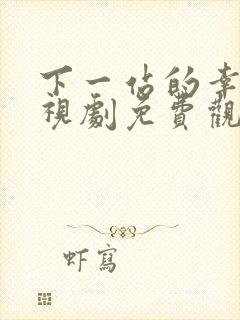 下一佔的幸
視劇免費觀
虾寫